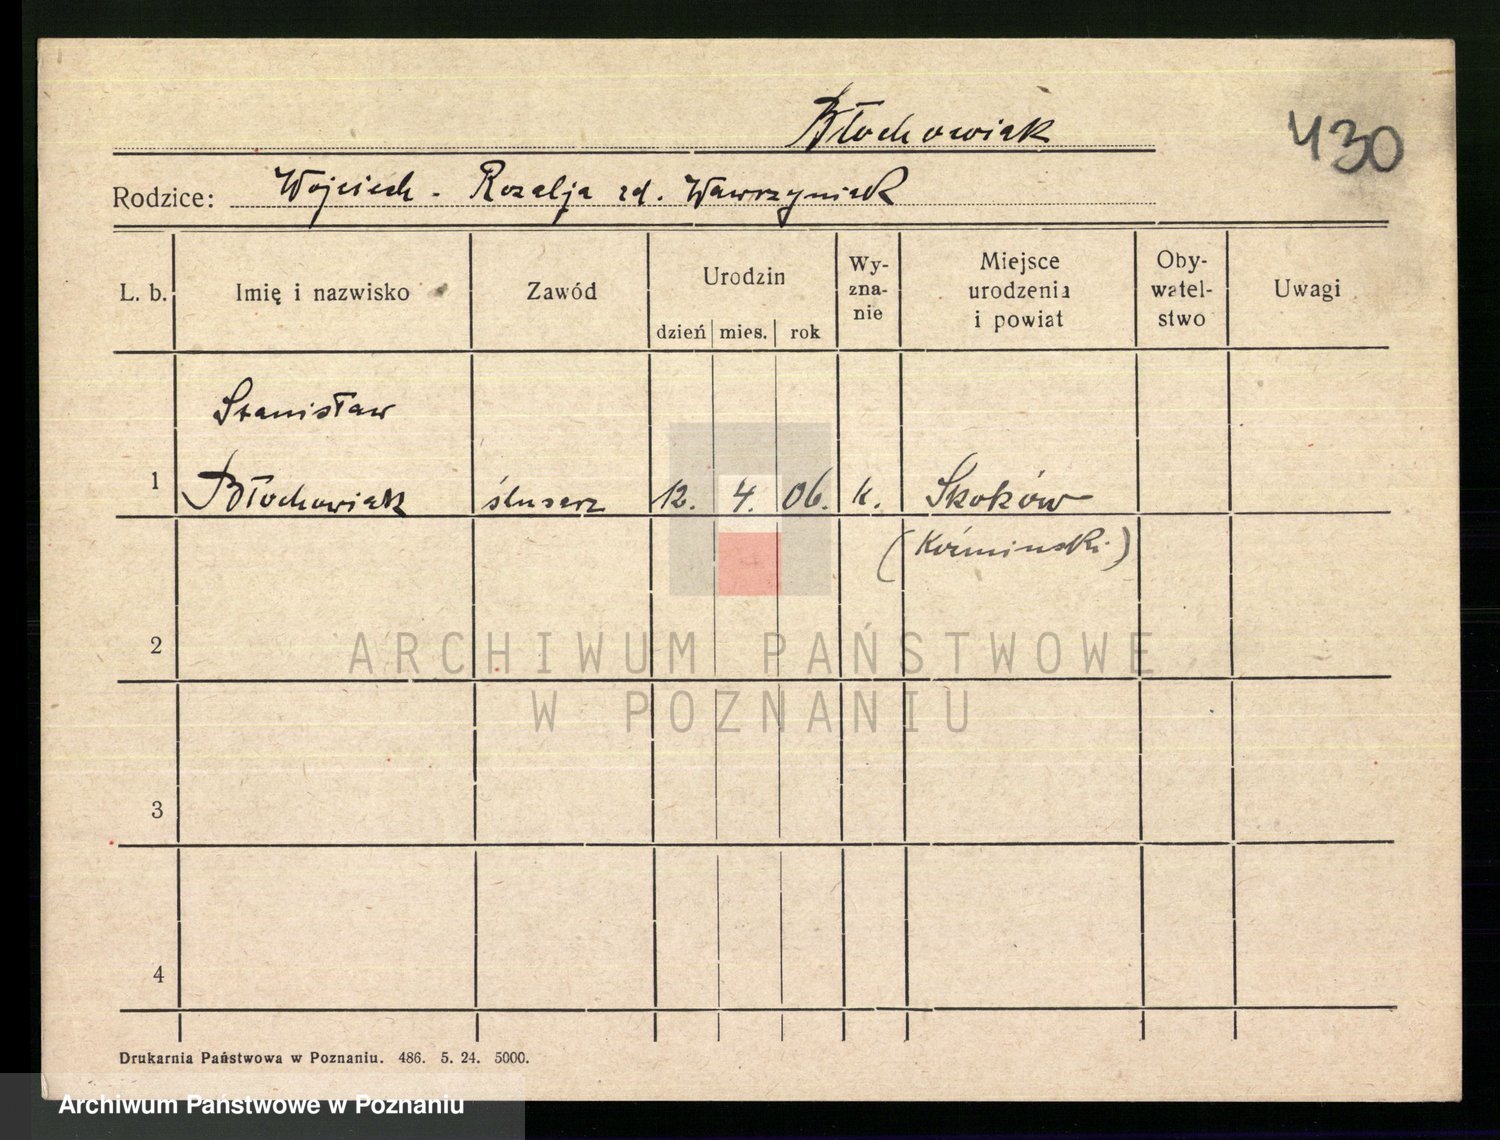 Błochowiak
430
Rodzice: Wojciech - Rozalja zd. Wawrzyniak
L. b. Imię i nazwisko Zawód Urodzin dzień mies. rok Wy-zna-nie Miejsce urodzenia i powiat Oby-watel-stwo Uwagi
Stanisław
1 Błochowiak ślusarz 12. 4. 06. k. Skoków
(Koźminski)
2
ARCHIWUM PAŃSTWOWE
W POZNANIU
3
4
Drukarnia Państwowa w Poznaniu. 486. 5. 24. 5000.
Archiwum Państwowe w Poznaniu